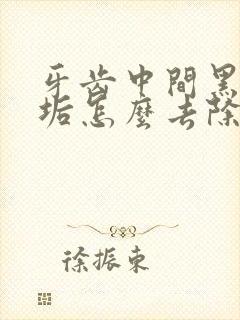 牙齿中間黑
垢怎麼去除
徐振東